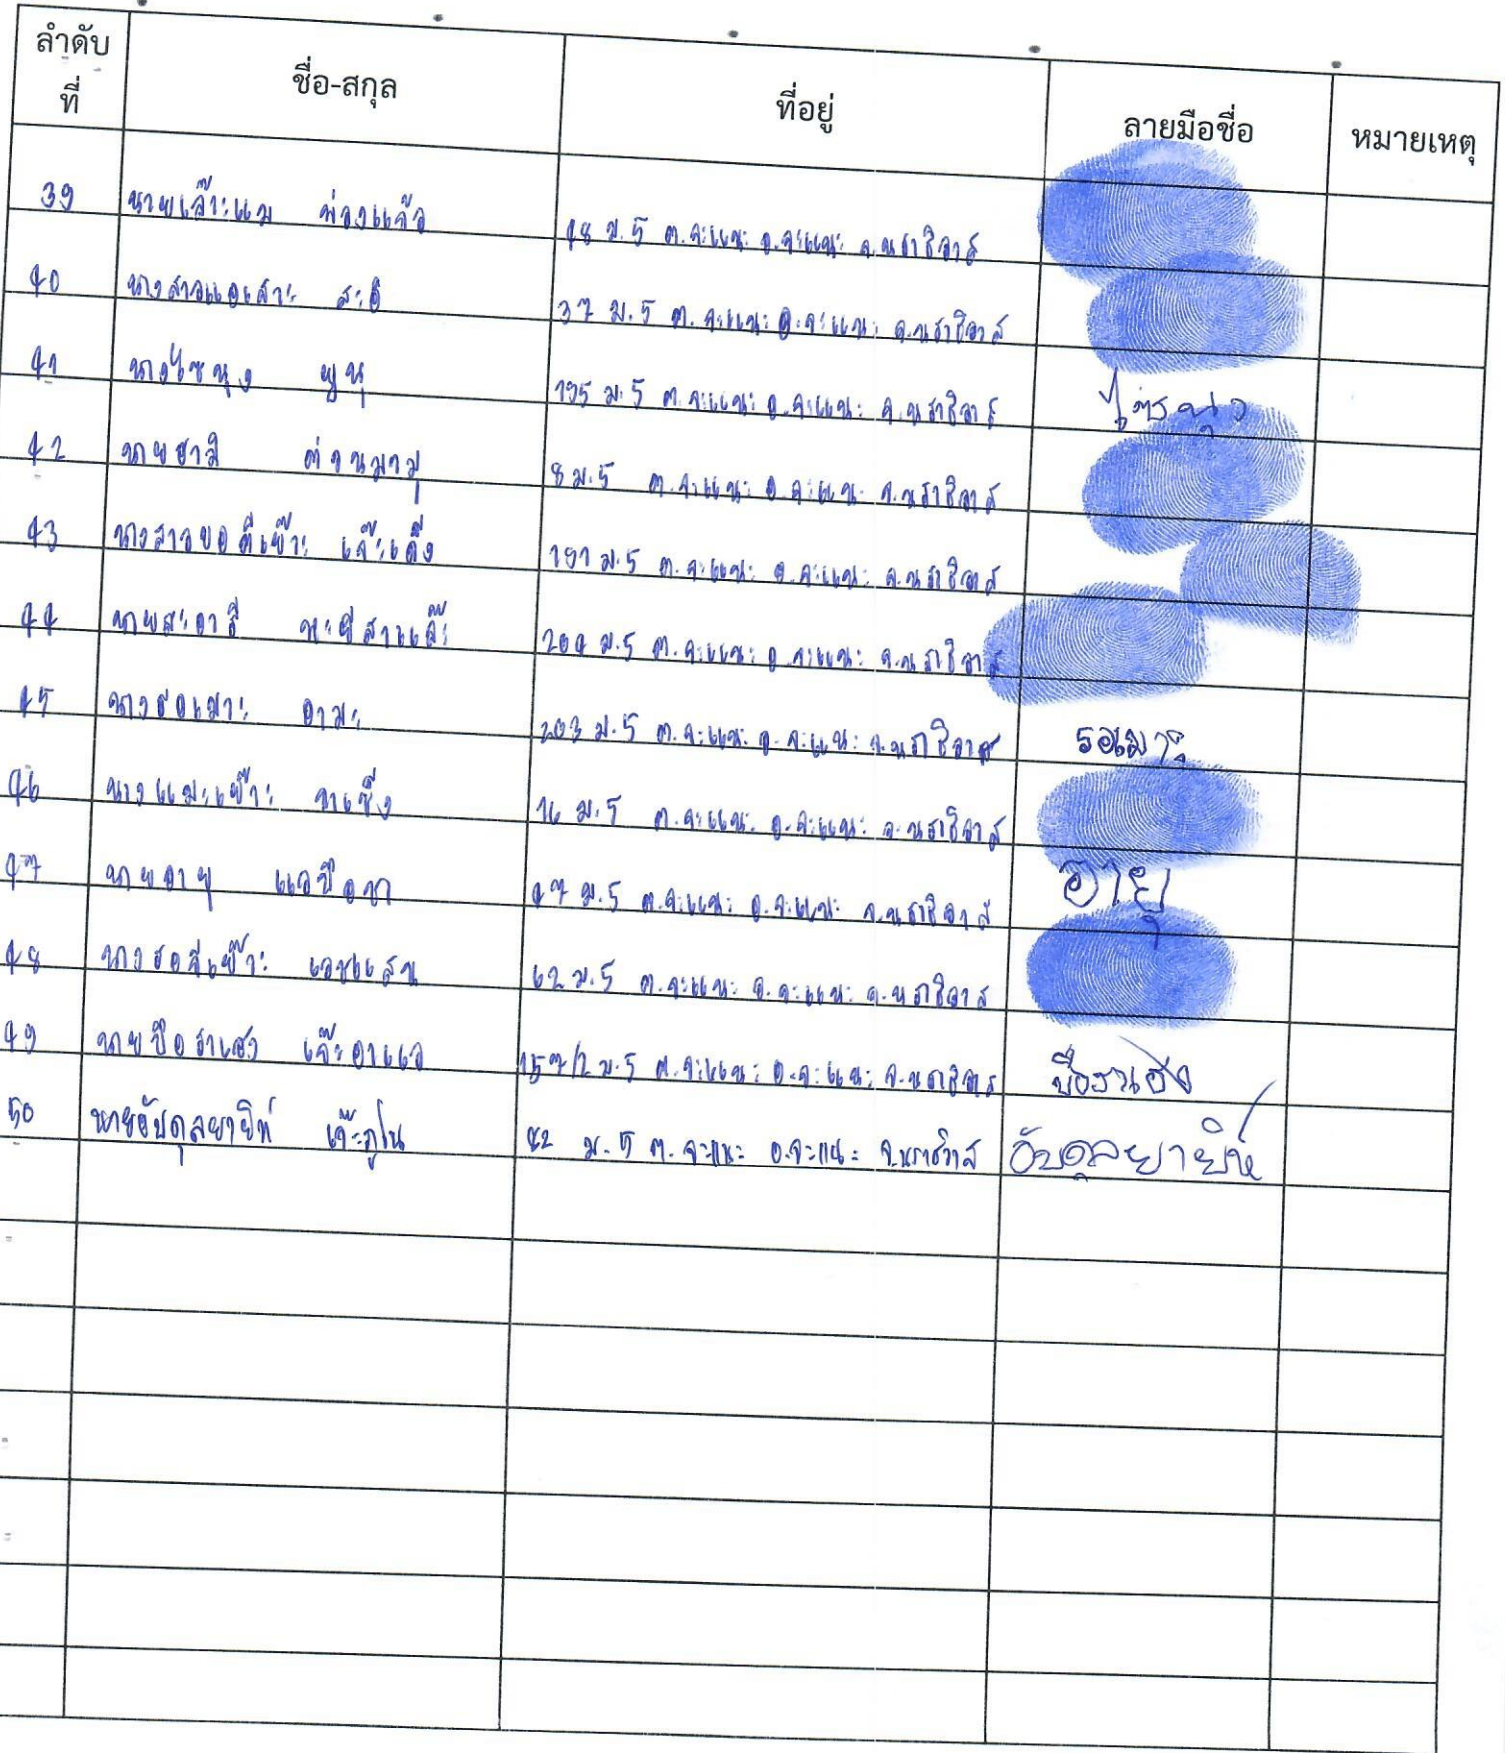 ลำดับที่ ชื่อ-สกุล ที่อยู่ ลายมือชื่อ หมายเหตุ
39 นายเจ๊ะแม 48 ม.5 ต.จะแนะ อ.จะแนะ จ.นราธิวาส
40 นางสาวแอเสาะ สะอิ 37 ม.5 ต.จะแนะ อ.จะแนะ จ.นราธิวาส
41 นางไซนุง 195 ม.5 ต.จะแนะ อ.จะแนะ จ.นราธิวาส
42 นายฮามิ 8 ม.5 ต.จะแนะ อ.จะแนะ จ.นราธิวาส
43 นางสาว 191 ม.5 ต.จะแนะ อ.จะแนะ จ.นราธิวาส
44 นายสะอารี 204 ม.5 ต.จะแนะ อ.จะแนะ จ.นราธิวาส
45 นางรอเมาะ อามะ 203 ม.5 ต.จะแนะ อ.จะแนะ จ.นราธิวาส รอเมาะ
46 นางแมะเย๊าะ 16 ม.5 ต.จะแนะ อ.จะแนะ จ.นราธิวาส
47 นายอายุ 47 ม.5 ต.จะแนะ อ.จะแนะ จ.นราธิวาส อายุ
48 62 ม.5 ต.จะแนะ อ.จะแนะ จ.นราธิวาส
49 นายบือราเฮง เจ๊ะอาแว 157/2 ม.5 ต.จะแนะ อ.จะแนะ จ.นราธิวาส บือราเฮง
50 นายอับดุลยายิท์ เจ๊ะภูโน 82 ม.5 ต.จะแนะ อ.จะแนะ จ.นราธิวาส อับดุลยายิท์